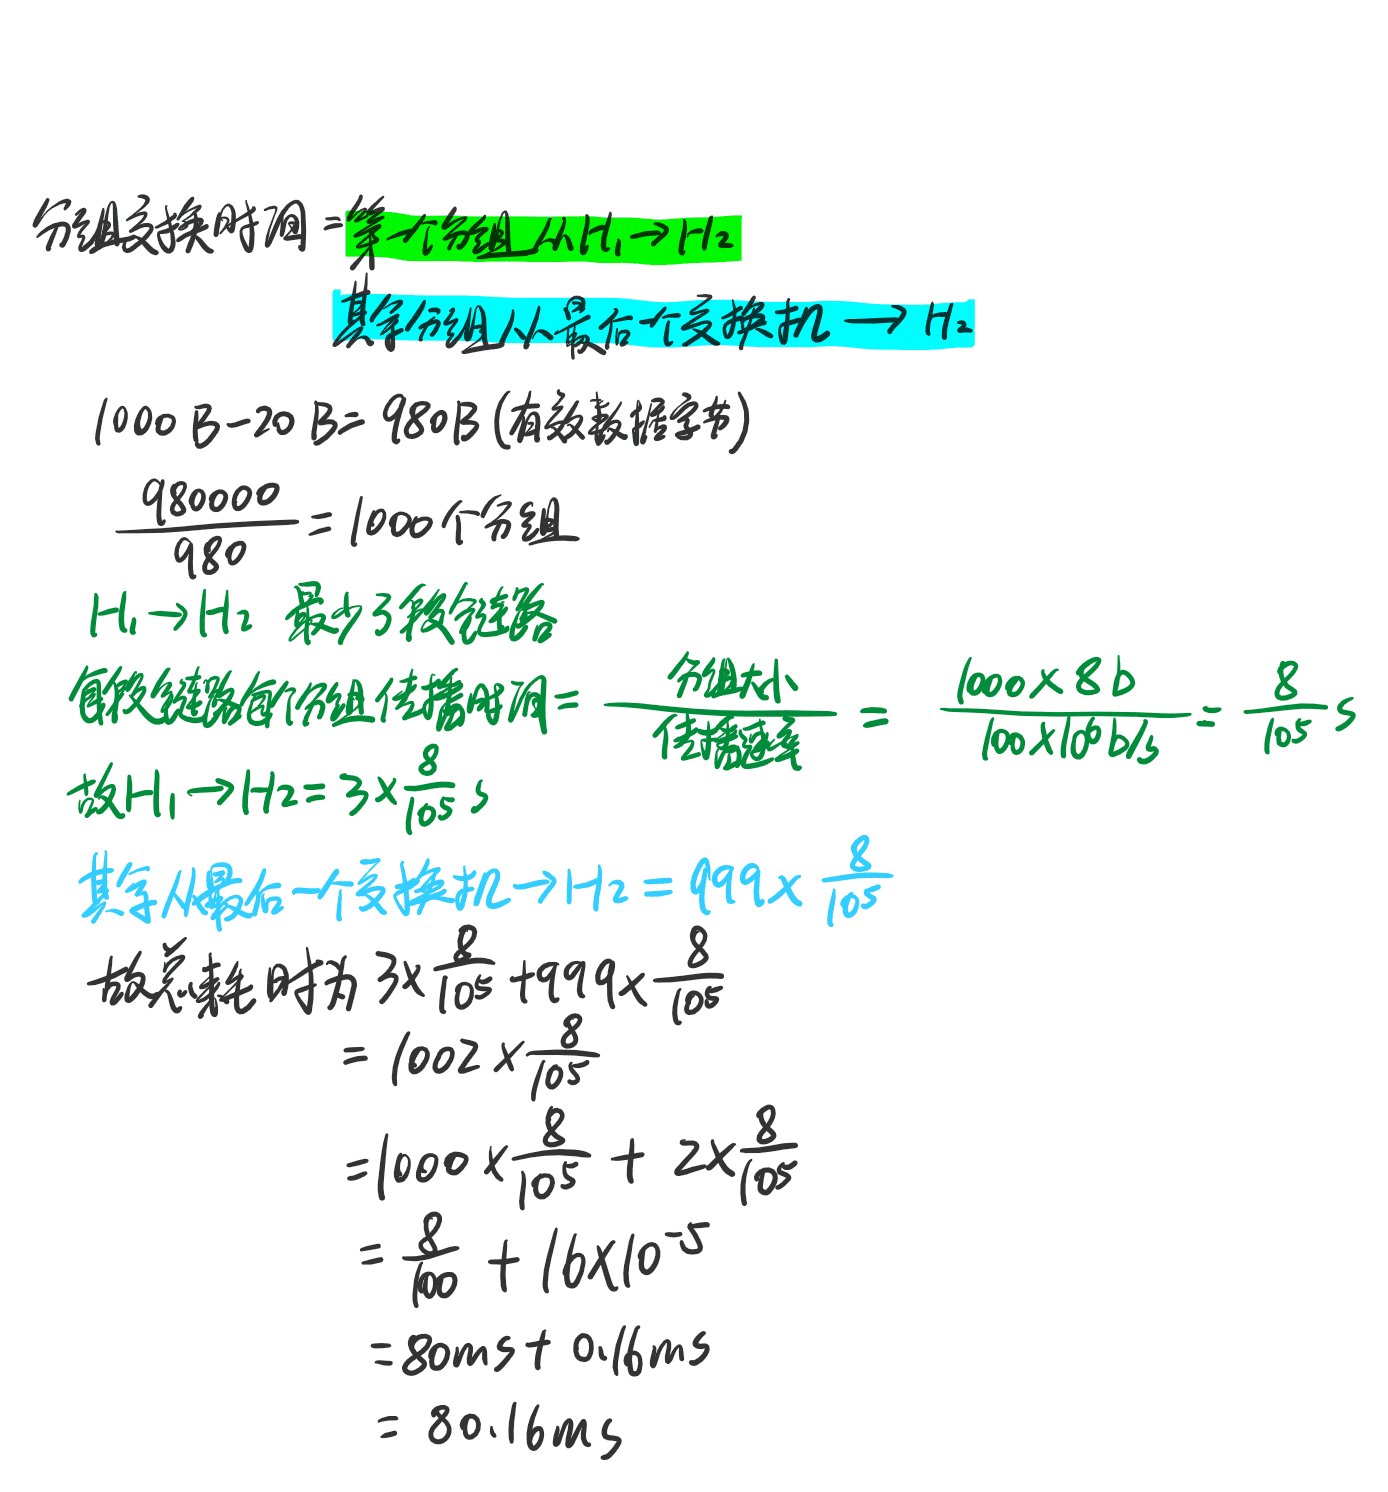 分组交换时间=第一个分组从H₁→H₂
其余分组从最后一个交换机→H₂
1000B-20B=980B(有效数据字节)
980000/980=1000个分组
H₁→H₂ 最少3段链路
每段链路每个分组传播时间=分组大小/传播速率=1000×8b/100×10⁶b/s=8/10⁵ s
故H₁→H₂=3×8/10⁵ s
其余从最后一个交换机→H₂=999×8/10⁵
故总耗时为3×8/10⁵+999×8/10⁵
=1002×8/10⁵
=1000×8/10⁵+2×8/10⁵
=8/100+16×10⁻⁵
=80ms+0.16ms
=80.16ms